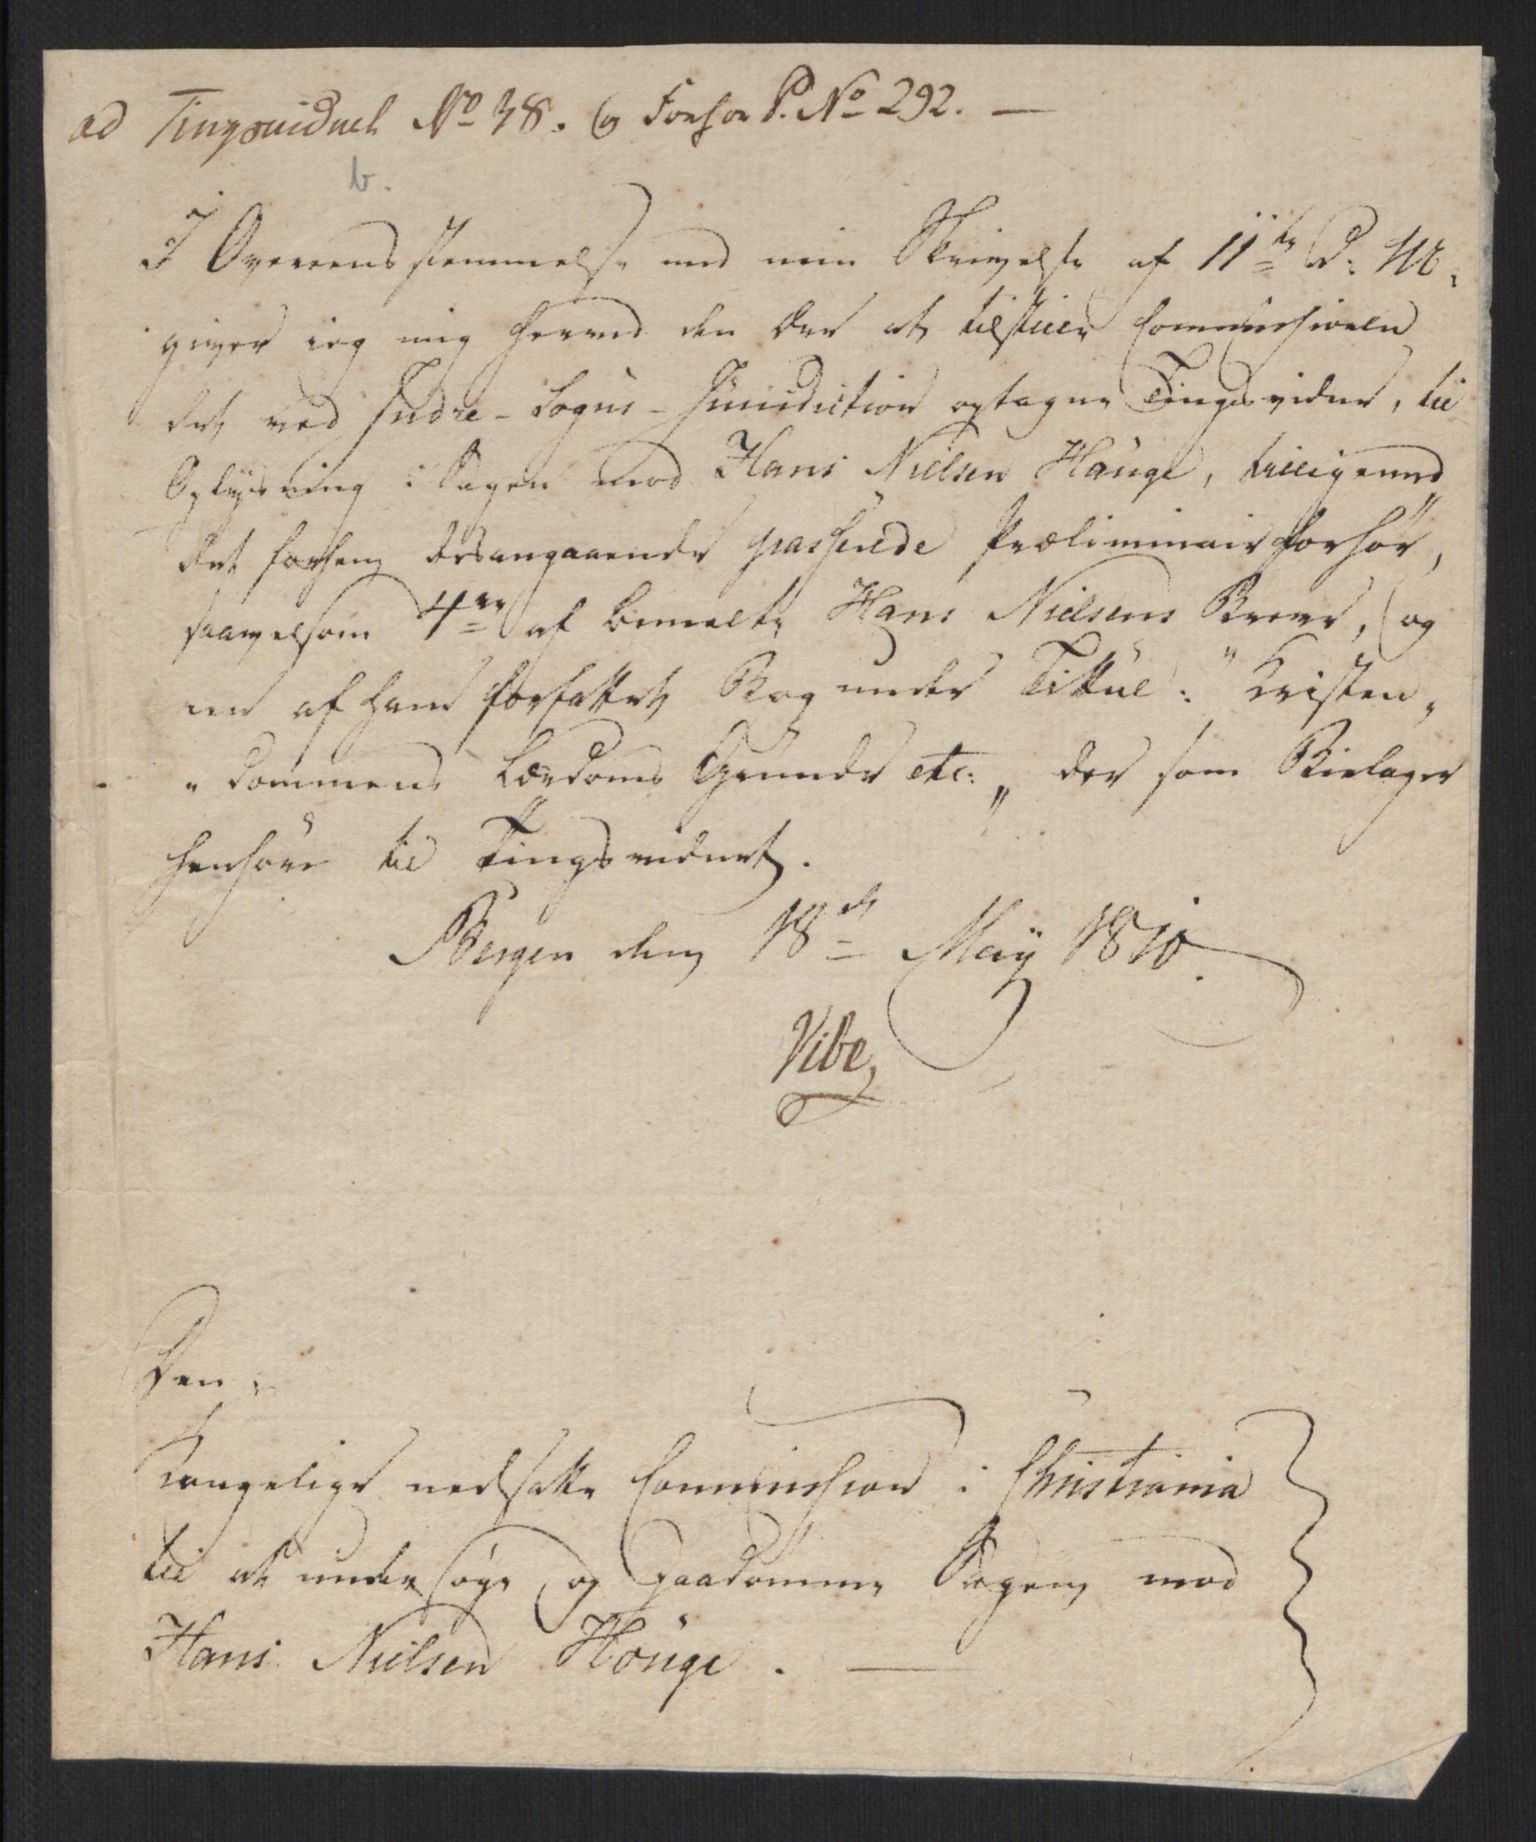 ad Tingsvidnet No 38. og Forhør P. No 292. —
b.
I Overeensstemmelse med min Skrivelse af 11te d: M:
giver ieg mig herved den Ære at tilstille Commissionen
det ved Indre-Sogns-Jurisdiction optagne Tingsvidne, til
Oplysning i Sagen mod Hans Nielsen Hauge, tilligemed
det forhen desangaaende passerede Præliminairforhør,
saavelsom 4re af bemeldte Hans Nielsens Breve, og
en af ham forfattet Bog under Tittul: "Kristen„
„dommens Lærdoms Grunde etc:„ der som Bielager
henhøre til Tingsvidnet.
Bergen den 18de May 1810.
Vibe,
Den
Kongelige nedsatte Commission i Christiania
til at undersøge og paadømme Sagen mod
Hans Nielsen Houge. —